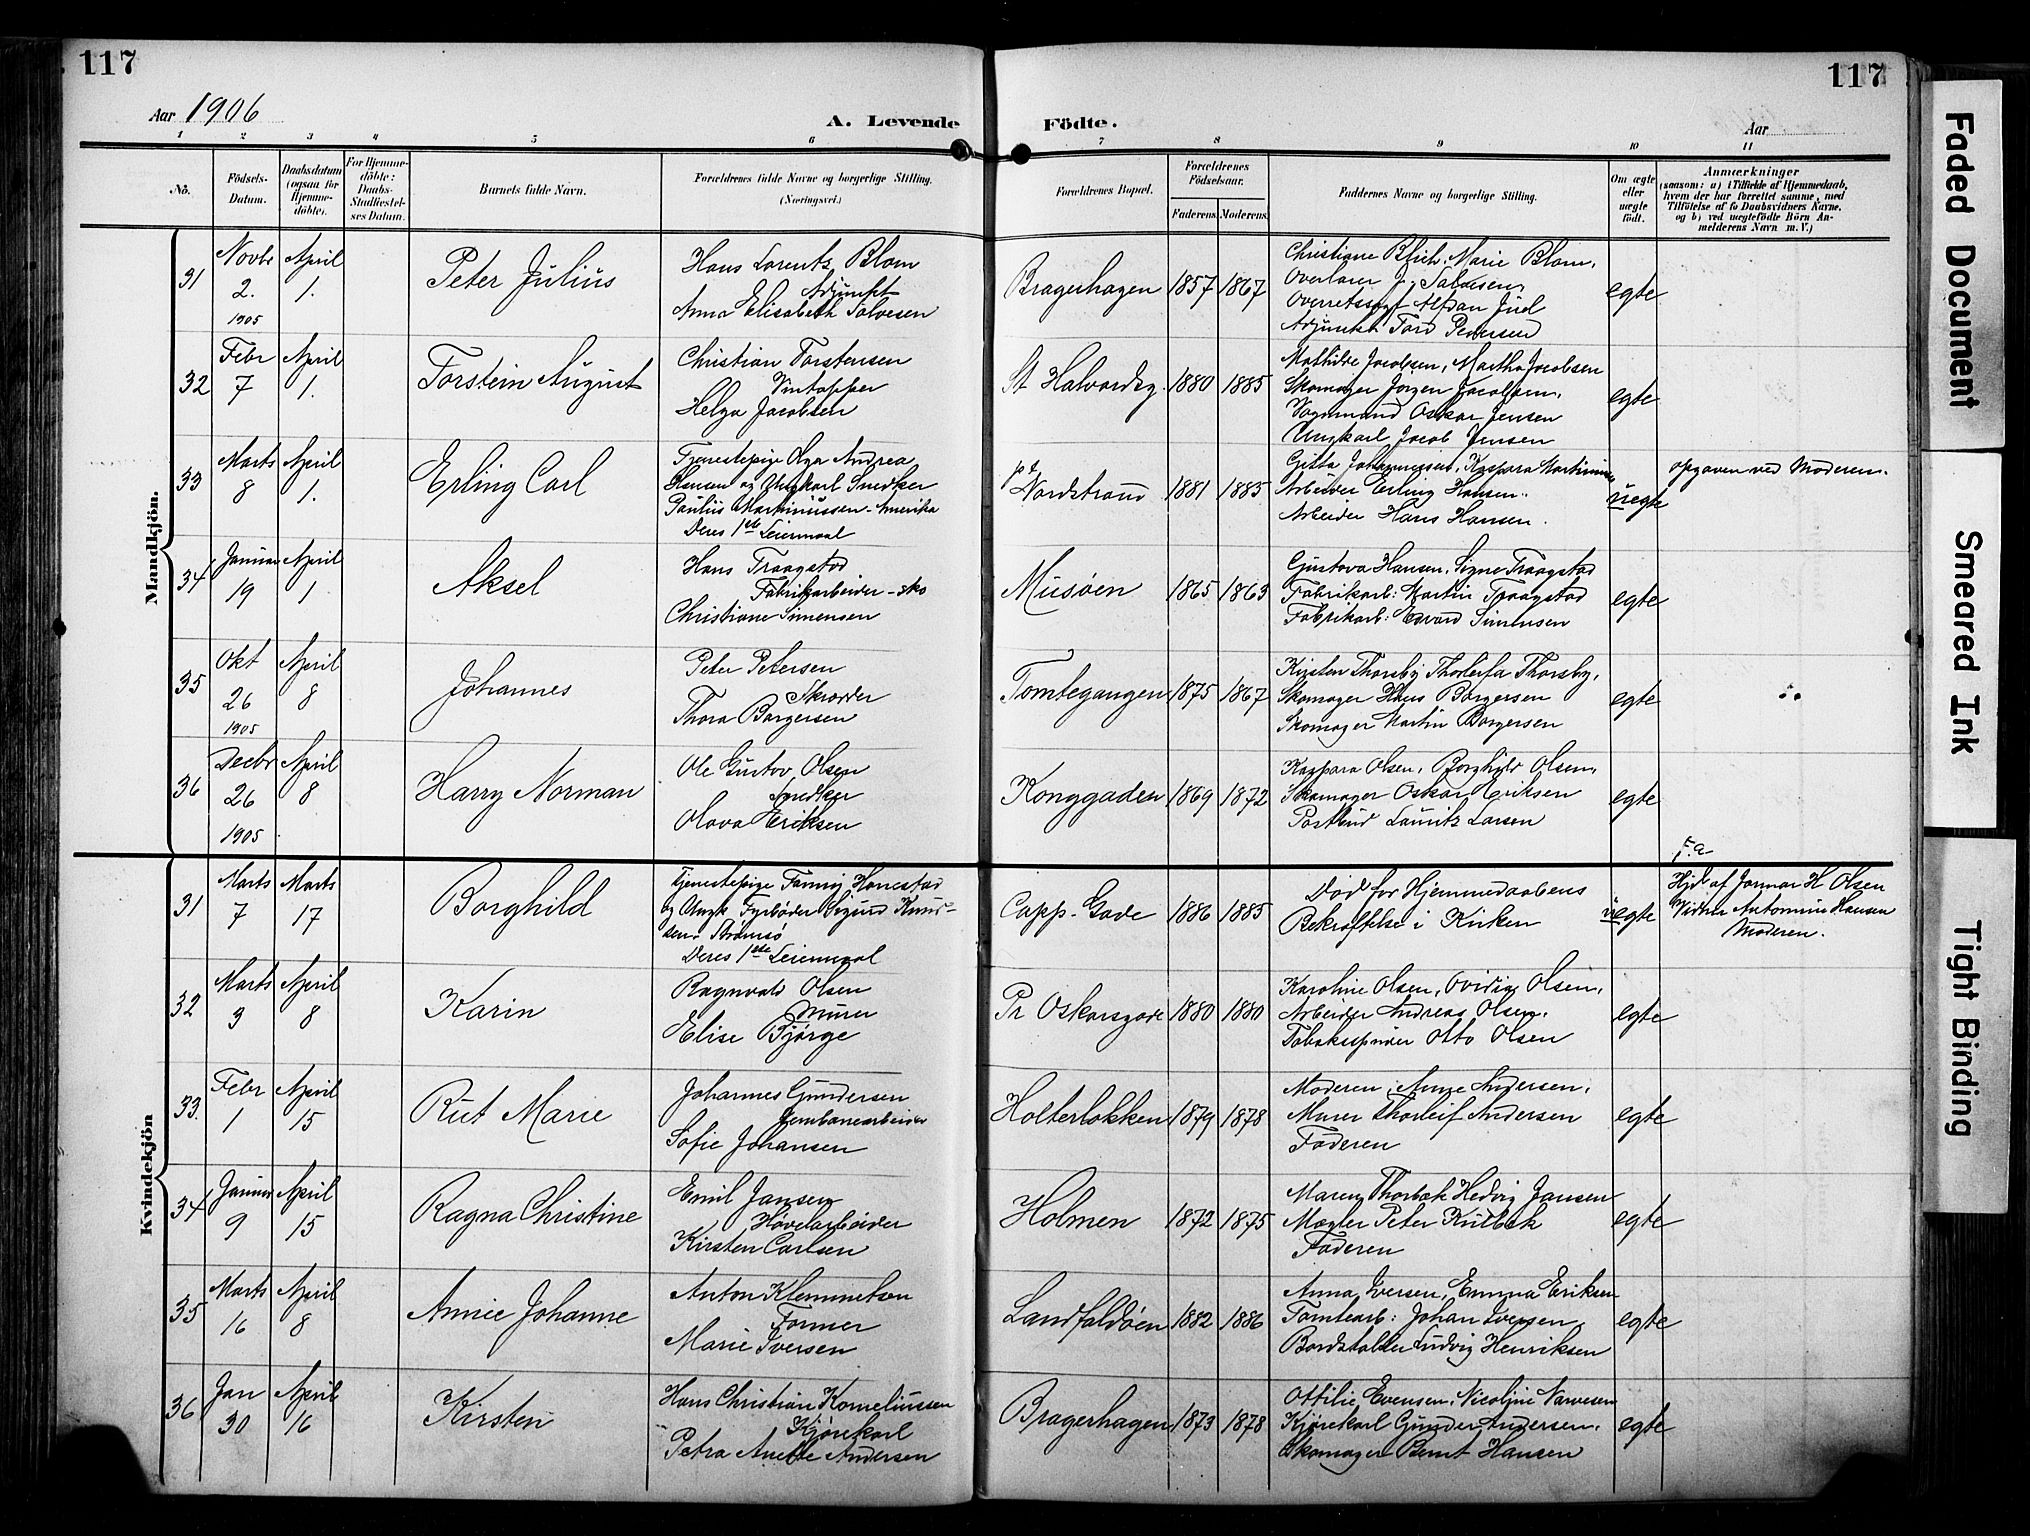 117
117
Aar 1906
A. Levende
Födte.
Aar
1 2 3 4 5 6
7 8 9 10 11
No.
Födsels-
Datum.
Daabsdatum
(ogsaa for
Hjemme-
döbte).
For Hjemme-
döbte:
Daabs-
Stadfæstel-
ses Datum.
Barnets fulde Navn.
Forældrenes fulde Navne og borgerlige Stilling.
(Næringsvei.)
Forældrenes Bopæl.
Forældrenes
Födselsaar.
Faderens. Moderens.
Faddernes Navne og borgerlige Stilling.
Om ægte
eller
uægte
født.
Anmærkninger
(saasom: a) i Tilfælde af Hjemmedaab,
hvem der har forrettet samme, med
Tilföielse af to Daabsvidners Navne,
og b) ved uægtefödte Börn An-
melderens Navn m. V.)
Mandkjön.
31
Novbr
2.
1905
April
1.
Peter Julius
Hans Lorentz Blom
Adjunkt
Anna Elisabeth Salvesen
Bragerhagen
1857
1867
Christiane Blich, Marie Blom,
Overlærer J. Salvesen,
Juel
Adjunkt Tord Pedersen
egte
32
Febr
7
April
1.
Torstein August
Christian Torstensen
Vintapper
Helga Jacobsen
St Halvordsg.
1880
1885
Mathilde Jacobsen, Martha Jacobsen
Skomager Jørgen Jacobsen,
Vognmand Oskar Jensen
Ungkarl Jacob Jensen
egte
33
Marts
8
April
1.
Erling Carl
Tjenestepige Olga Andrea
Hansen og Ungkarl Snedker
Paulus Martinussen - Amerika
Deres 1ste Leiermaal
pt
Nordstrand
1881
1883
Gitta Johannessen, Kaspara
Arbeider Erling Hansen.
Arbeider Hans Hansen.
uegte
opgaven ved Moderen.
34
Januar
19
April
1
Aksel
Hans Traagstad
Fabrikarbeider - sko
Christiane Simensen
Musøen
1865
1863
Gustava Hansen, Signe Traagstad
Fabrikarb: Martin Traagstad
Fabrikarb: Edvard Simensen
egte
35
Okt
26
1905
April
8
Johannes
Peter Petersen
Skrædder
Thora Borgersen
Tomtegangen
1875
1867
Kirsten Thorsby, Thorleifa Thorsby,
Skomager Hans Borgersen
Skomager Martin Borgersen
egte
36
Decbr
26
1905
April
8
Harry Norman
Ole Gustav Olsen
Snedker
Olava Eriksen
Konggaden
1869
1872
Kaspara Olsen, Borghild Olsen,
Skomager Oskar Eriksen
Postbud Lauritz Larsen
egte
Kvindekjön
31
Marts
7
Marts
17
Borghild
Tjenestepige Fanny Hanestad
og Ungk. Fyrbøder Sigurd Knud-
sen, Strømsø
Deres 1ste Leiermaal
Capp. Gade
1886
1885
Død før Hjemmedaabens
Bekræftelse i Kirken
uegte
F.a
Hjd. af Jormor H. Olsen
Vidner Antomine Hansen
Moderen.
32
Marts
3
April
8
Karin
Ragnvald Olsen
Murer
Elise Bjørge
Pr Oskarsgade
1880
1880
Karoline Olsen, Ovidia Olsen,
Arbeider Andreas Olsen,
Tobakspinder Otto Olsen
egte
33.
Febr
1
April
15
Rut Marie
Johannes Gundersen
Jernbanearbeider
Sofie Johansen
Holterløkken
1879
1878
Moderen, Anne Andersen,
Murer Thorleif Andersen
Faderen
egte
34
Januar
9
April
15
Ragna Christine
Emil Jansen
Høvelarbeider
Kirsten Carlsen
Holmen
1872
1875
Maren Thorbek Hedvig Jansen
Mægler Peter Kulbek
Faderen
egte
35
Marts
16
April
8
Annie Johanne
Anton Klemmetsen
Former
Marie Iversen
Landfaldøen
1882
1886
Anna Iversen, Emma Eriksen
Tomtearb: Johan Iversen,
Bordstabler Ludvig Henriksen
egte
36
Jan
30
April
16
Kirsten
Hans Christian Korneliussen
Kjørekarl
Petra Anette Andersen
Bragerhagen
1873
1878
Ottilie Evensen, Nicoline Narvesen
Kjørekarl Gunder Andersen.
Skomager Bernt Hansen
egte
Faded Document
Smeared Ink
Tight Binding